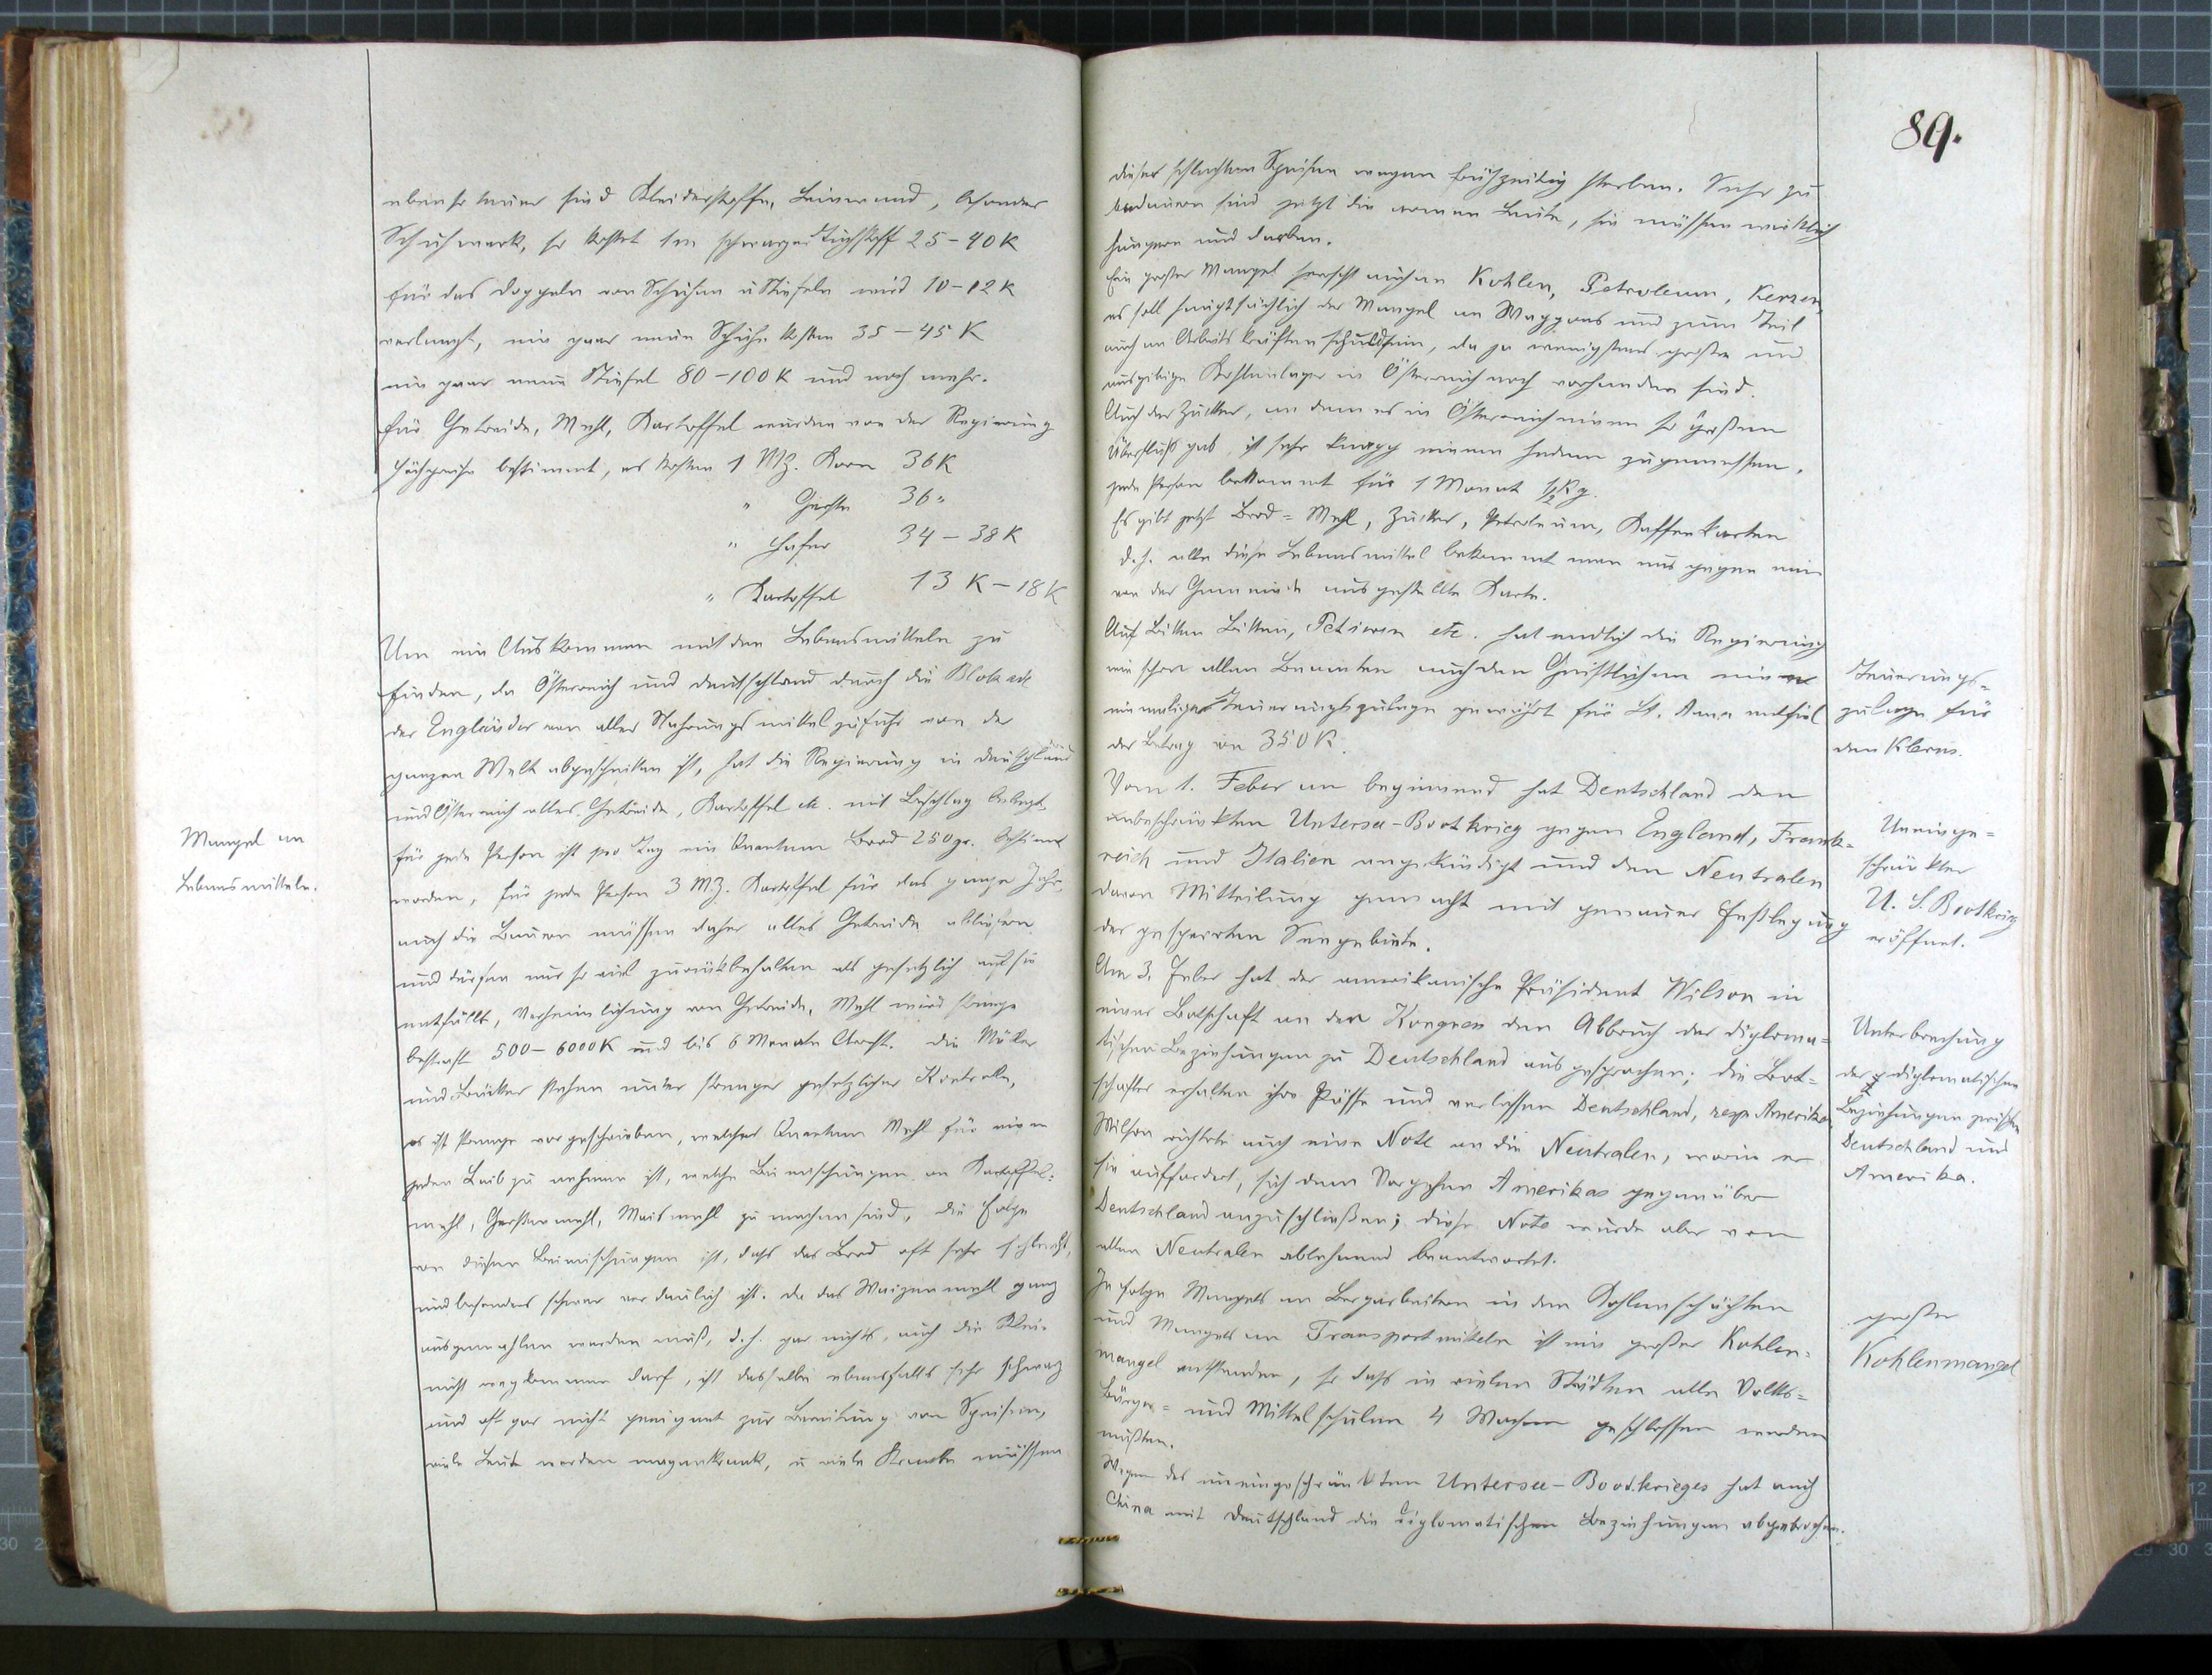 ebenso teuer sind Kleiderstoffe, Leinwand, besonders
Schuhwerk, so kostet 1m schwarzer Tuchstoff 25-40 K
für das Doppeln von Schuhen u Stiefeln wird 10-12 K
verlangt, ein paar neue Schuhe kosten 35-45 K
ein paar neue Stiefel 80-100 K und noch mehr.
für Getreide, Mehl, Kartoffel wurden von der Regierung
Höchstpreise bestimmt, es kosten 1 MZ. Korn 36 K
" Gerste 36 "
" Hafer 34-38 K
" Kartoffel 13 K-18 K
Mangel an
Lebensmitteln.
Um ein Auskommen mit den Lebensmitteln zu
finden, da Österreich und Deutschland durch die Blokade
der Engländer von aller Nahrungsmittelzufuhr von der
ganzen Welt abgeschnitten ist, hat die Regierung in Deutschland
und Österreich alles Getreide, Kartoffel etc. mit Beschlag belegt,
für jede Person ist pro Tag ein Quantum Brod 250 gr. bestimmt
worden, für jede Person 3 MZ. Kartoffel für das ganze Jahr,
auch die Bauern müssen daher alles Getreide abliefern
und dürfen nur so viel zurückbehalten als gesetzlich auf sie
entfällt, Verheimlichung von Getreide, Mehl wird strenge
bestraft 500-6000 K und bis 6 Monate Arrest. Die Müller
und Bäcker stehen unter strenger gesetzlicher Kontrole,
es ist strenge vorgeschrieben, welches Quantum Mehl für einen
jeden Laib zu nehmen ist, welche Beimischungen an Kartoffel-
mehl, Gerstenmehl, Maismehl zu machen sind, die Folge
von diesen Beimischungen ist, dass das Brod oft sehr schlecht,
und besonders schwer verdaulich ist. Da das Weizenmehl ganz
ausgemahlen werden muß, d.h. gar nichts, auch die Kleie
nicht wegkommen darf, ist dasselbe ebenfalls sehr schwarz
und oft gar nicht geeignet zur Bereitung von Speisen,
viele Leute werden magenkrank, u viele Kranke müssen
89.
dieser schlechten Speisen wegen frühzeitig sterben. Sehr zu
bedauern sind jetzt die armen Leute, sie müssen wirklich
hungern und darben.
Ein großer Mangel herrscht auch an Kohlen, Petroleum, Kerzen,
es soll hauptsächlich der Mangel an Waggons und zum Teil
auch an Arbeitskräften schuld sein, da ja wenigstens große und
ausgibige Kohlenlager in Österreich noch vorhanden sind.
Auch der Zucker, an dem es in Österreich einen so großen
Überfluß gab, ist sehr knapp einem Jedem zugemessen,
jede Person bekommt für 1 Monat 1/2 Kg.
Es gibt jetzt Brod-Mehl, Zucker, Petroleum, Kaffeekarten
d.h. alle diese Lebensmittel bekommt man nur gegen eine
von der Gemeinde ausgestellte Karte.
Auf Bitten Bitten, Petionen etc. hat endlich die Regierung
wie schon allen Beamten auch den Geistlichen eine
einmalige Teuerungszulage gewährt für St. Anna entfiel
der Betrag von 350 K.
Teuerungs-
zulage für
den Klerus.
Vom 1. Feber an beginnend hat Deutschland den
unbeschränkten Untersee-Bootkrieg gegen England, Frank-
reich und Italien angekündigt und den Neutralen
davon Mitteilung gemacht mit genauer Festlegung
der gesperrten Seegebiete.
Uneinge-
schränkter
U. S. Bootkrieg
eröffnet.
Am 3. Feber hat der amerikanische Präsident Wilson in
einer Botschaft an den Kongress den Abbruch der diploma-
tischen Beziehungen zu Deutschland ausgesprochen; die Bot-
schafter erhalten ihre Pässe und verlassen Deutschland, resp Amerika.
Wilson richtete auch eine Note an die Neutralen, worin er
sie auffordert, sich dem Vorgehen Amerikas gegenüber
Deutschland anzuschließen; diese Note wurde aber von
allen Neutralen ablehnend beantwortet.
Unterbrechung
der diplomatischen
Beziehungen zwischen
Deutschland und
Amerika.
In folge Mangels an Bergarbeitern in den Kohlenschächten
und Mangels an Transportmitteln ist ein großer Kohlen-
mangel entstanden, so dass in vielen Städten alle Volks-
Bürger- und Mittelschulen 4 Wochen geschlossen werden
mußten.
großer
Kohlenmangel
Wegen des uneingeschränkten Untersee-Bootkrieges hat auch
China mit Deutschland die diplomatischen Beziehungen abgebrochen.